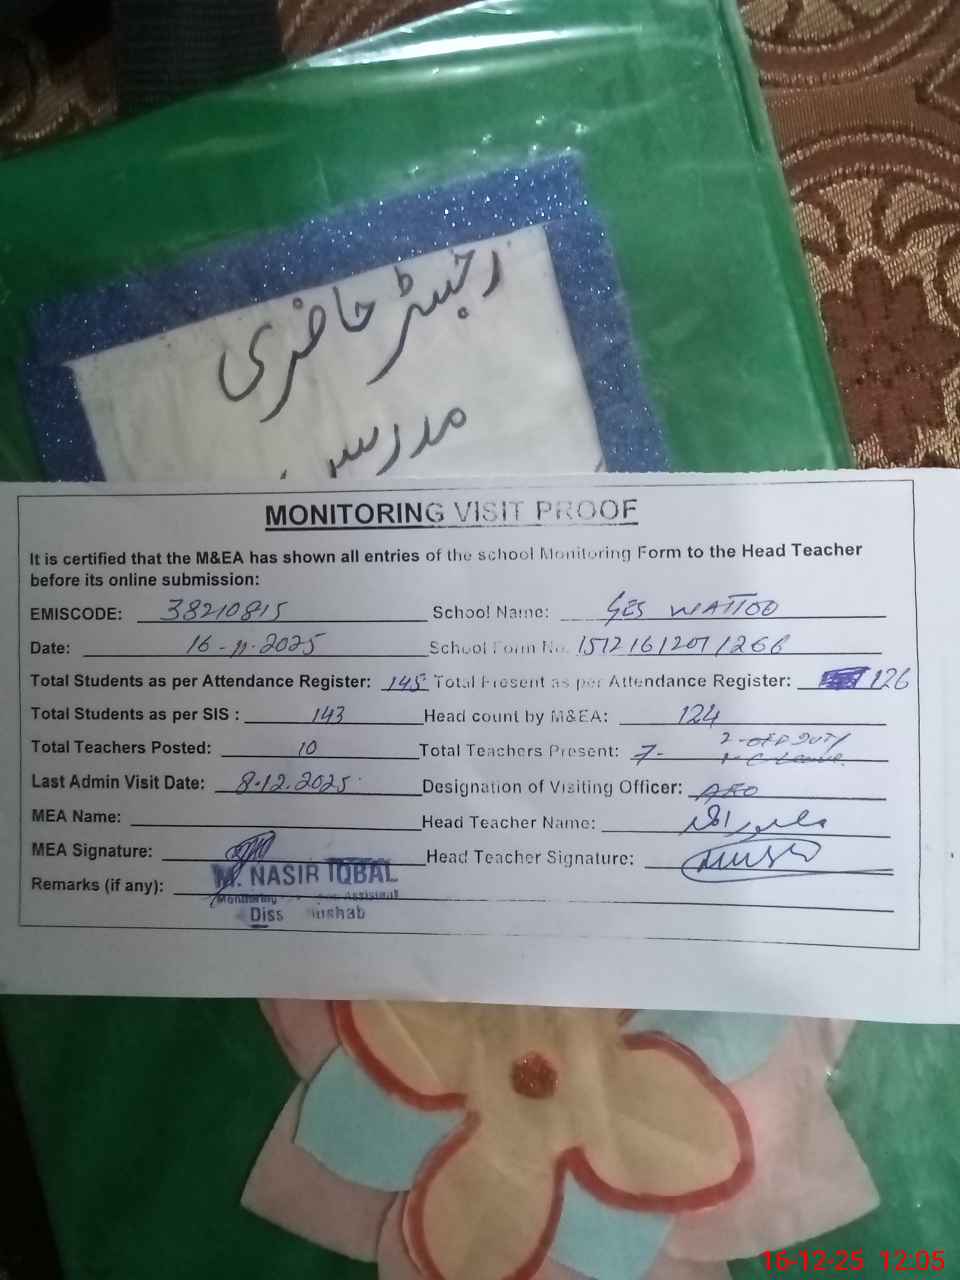 رجسٹر حاضری
مدرسہ
MONITORING VISIT PROOF
It is certified that the M&EA has shown all entries of the school Monitoring Form to the Head Teacher
before its online submission:
EMISCODE: 38210815 School Name: GES WATTOO
Date: 16-11-2025 School Form No. 1512161201/266
Total Students as per Attendance Register: 145 Total Present as per Attendance Register: 126
Total Students as per SIS : 143 Head count by M&EA: 124
Total Teachers Posted: 10 Total Teachers Present: 7- 2-OFF DUTY
1-C Leave
Last Admin Visit Date: 8-12-2025 Designation of Visiting Officer: AEO
MEA Name: Head Teacher Name:
MEA Signature: Head Teacher Signature:
M. NASIR IQBAL
Remarks (if any): Monitoring Assistant
Diss
16-12-25 12:05